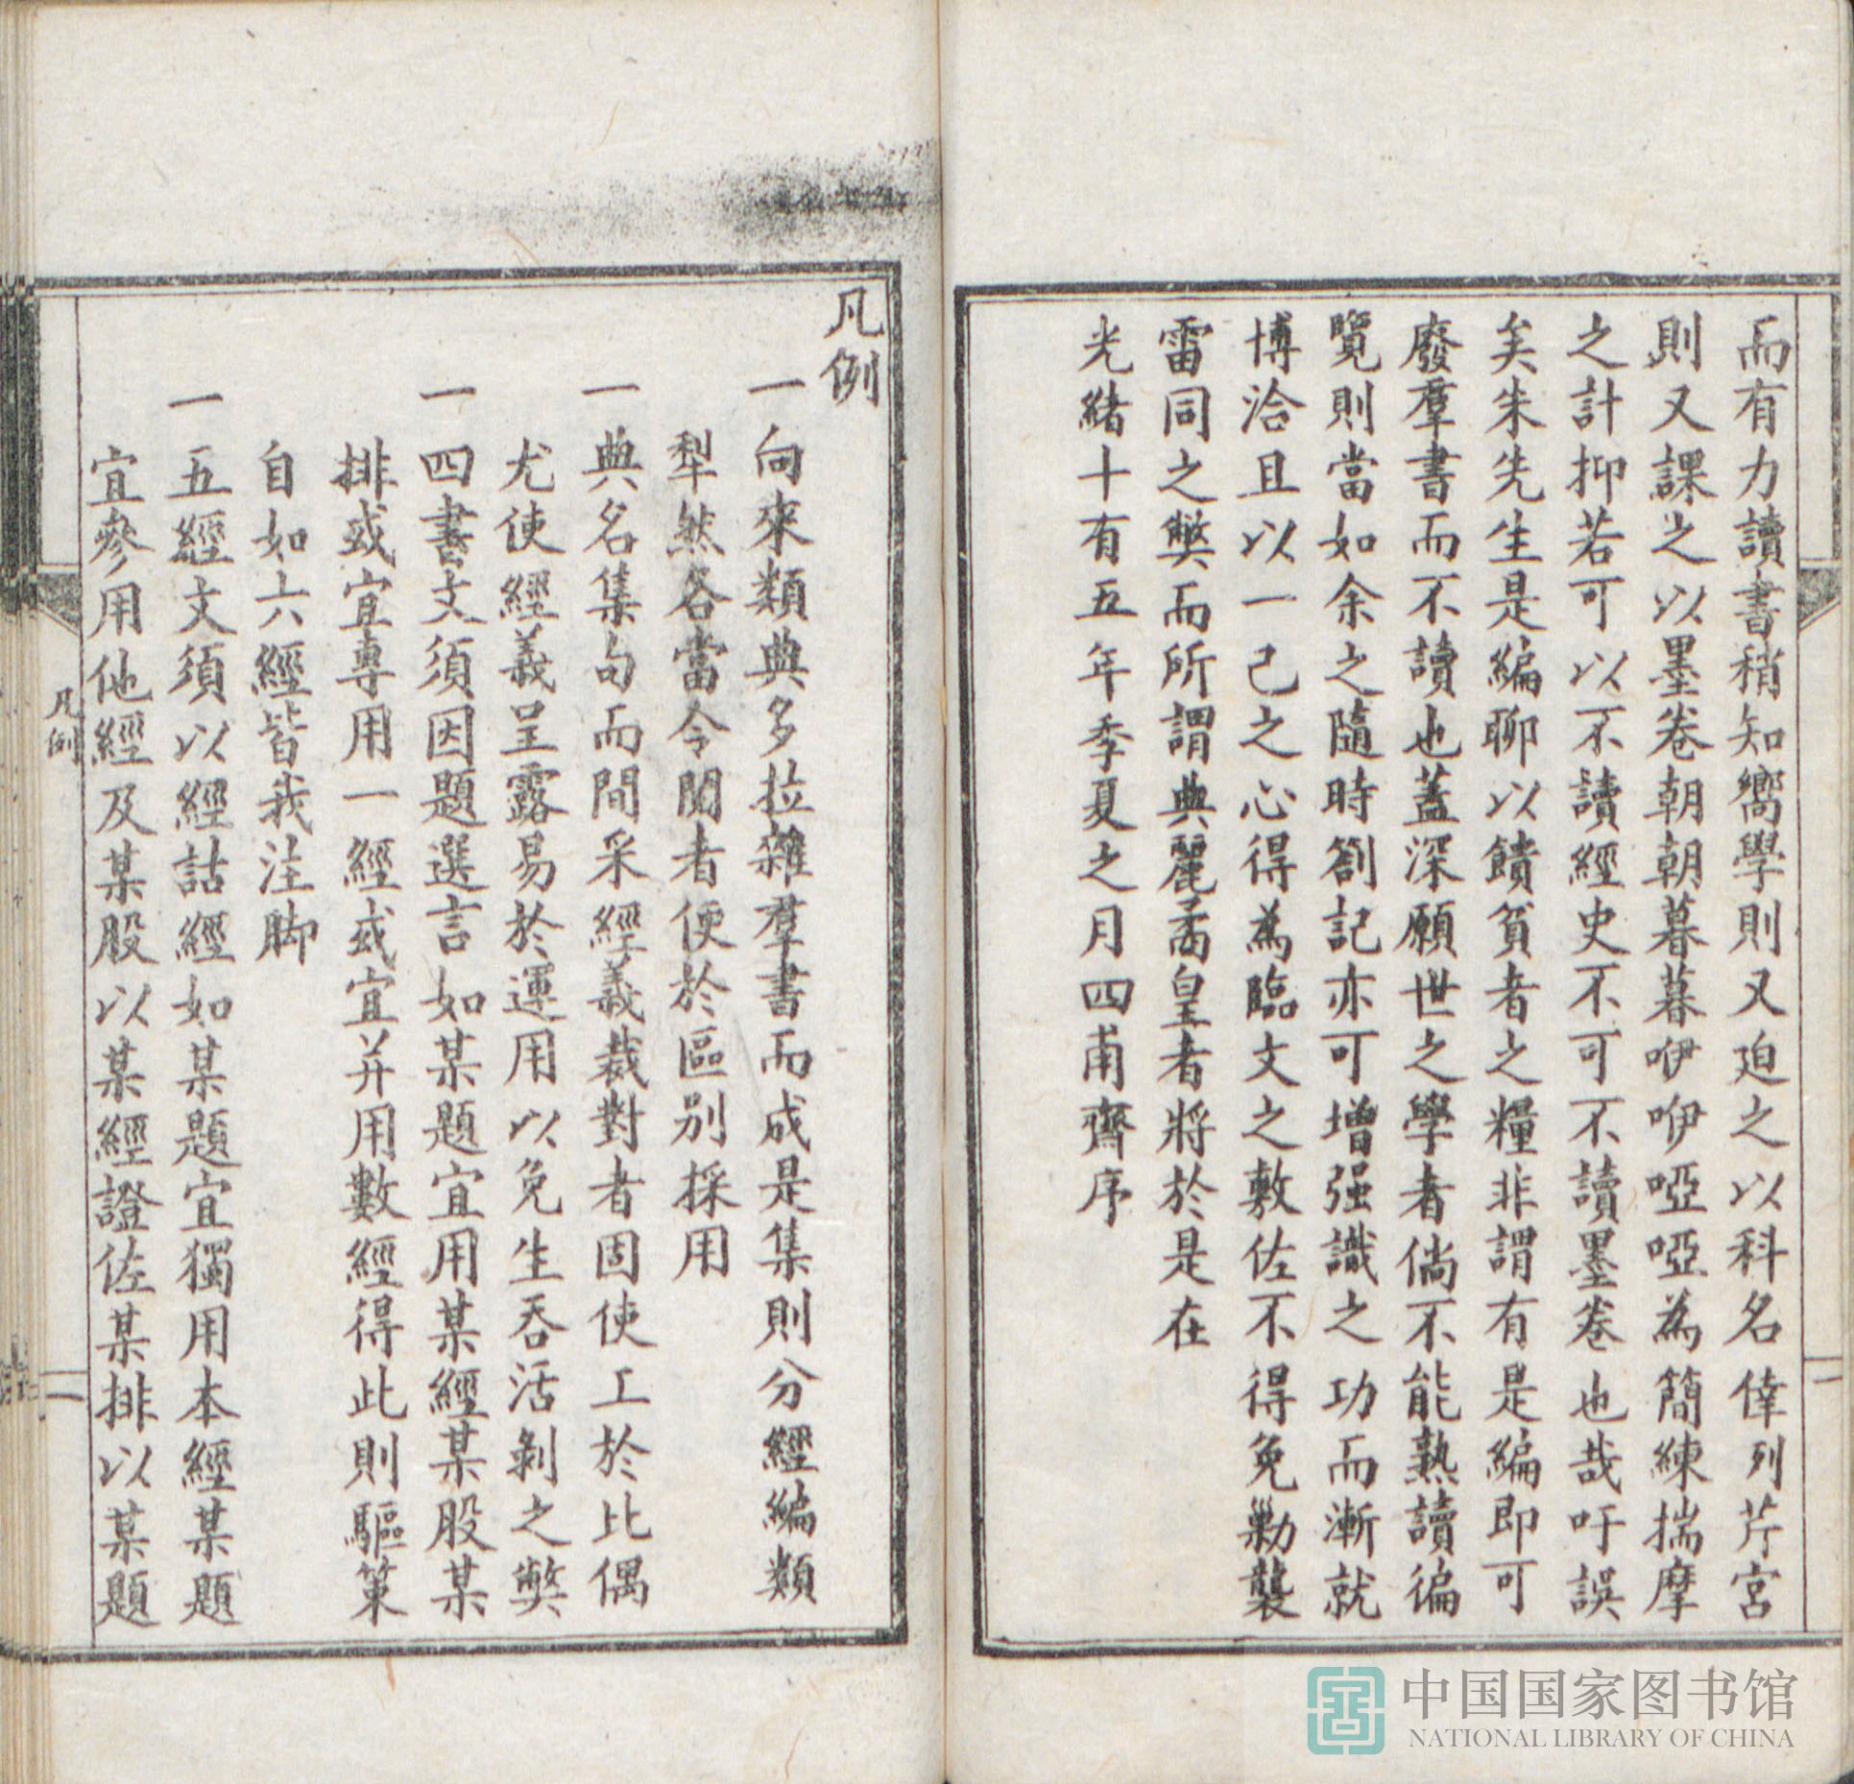 而有力讀書稍知嚮學則又迫之以科名倖列芹宮
則又課之以墨卷朝朝暮暮咿咿啞啞為簡練揣摩
之計抑若可以不讀經史不可不讀墨卷也哉吁誤
矣朱先生是編聊以饋貧者之糧非謂有是編即可
廢羣書而不讀也蓋深願世之學者倘不能熟讀徧
覽則當如余之隨時劄記亦可增强識之功而漸就
博洽且以一己之心得為臨文之敷佐不得免勦襲
雷同之獘而所謂典麗矞皇者將於是在
光緒十有五年季夏之月四甫齋序
凡例
一向來類典多拉雜羣書而成是集則分經編類
犁然各當令閱者便於區別採用
一典名集句而間采經義裁對者固使工於比偶
尤使經義呈露易於運用以免生吞活剝之獘
一四書文須因題選言如某題宜用某經某股某
排或宜專用一經或宜并用數經得此則驅策
自如六經皆我注脚
一五經文須以經詁經如某題宜獨用本經某題
宜參用他經及某股以某經證佐某排以某題
凡例
一
中国国家图书馆
NATIONAL LIBRARY OF CHINA